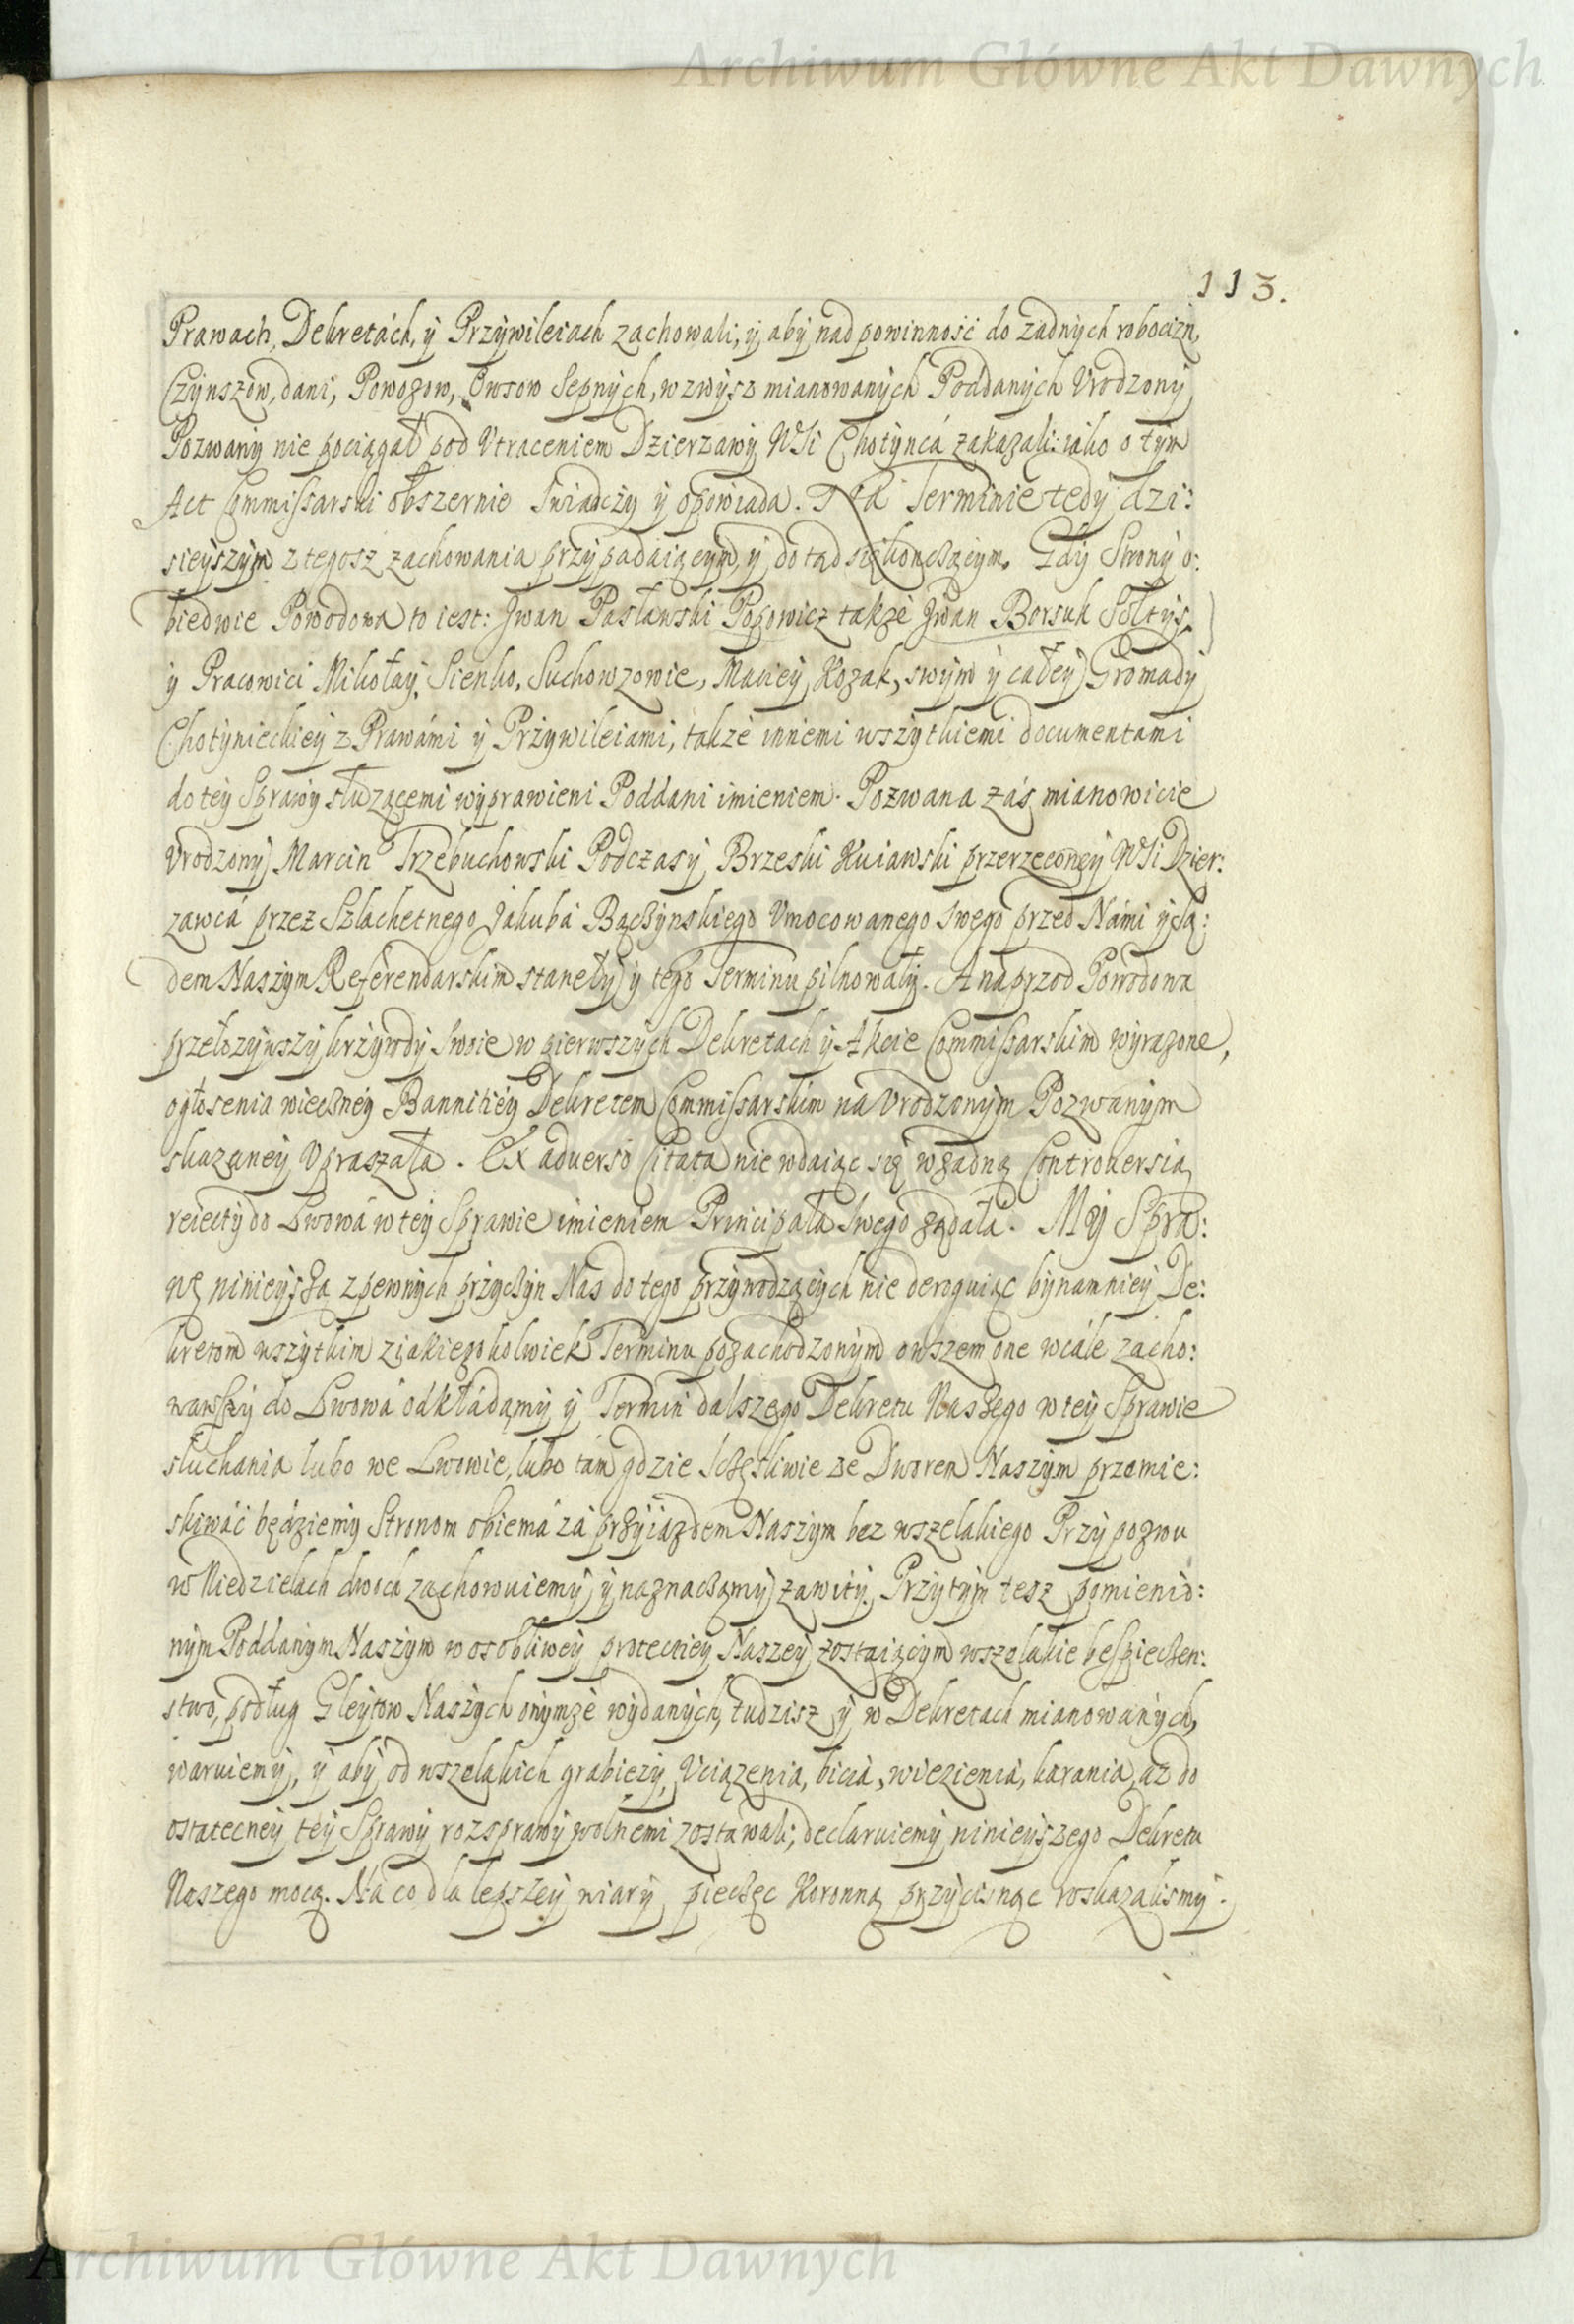 Archiwum Główne Akt Dawnych
113.
Prawach, Dekretách, ÿ Przÿwileiach zachowali; ÿ abÿ nad powinność do żadnÿch robocizn,
Czÿnszow, dani, Powozow, Owsow Sepnÿch, wzwÿsz mianowanÿch Poddanÿch Vrodzonÿ
Pozwanÿ nie pociągał pod Vtraceniem Dzierzawÿ WSi Chotÿncá zakazali: iako o tÿm
Act Commissarski obszernie Swiadczÿ ÿ opowiada. Na Terminie tedÿ dzi:
sieÿszÿm z tegosz zachowania przÿpadaiącÿm, ÿ do tąd się konczącÿm. Gdÿ Stronÿ o:
biedwie Powodowa to iest: Jwan Pasławski Popowicz także Jwan Borsuk Sołtÿs
ÿ Pracowici Mikołaÿ, Sienko, Suchowzowie, Macieÿ Kozak, swÿm ÿ całeÿ Gromadÿ
Chotÿnieckieÿ z Prawámi ÿ Przÿwileiami, takze innemi wszÿtkiemi documentami
do teÿ Sprawÿ słuzącemi wÿprawieni Poddani imieniem. Pozwana záś mianowicie
Vrodzonÿ Marcin Trzebuchowski Podczasÿ Brzeski Kuiawski przerzeconeÿ WSi Dzier:
zawcá przez Szlachetnego Jakubá Bączÿnskiego Vmocowanego swego przed Námi ÿ Są:
dem Naszÿm Referendarskim stanełÿ ÿ tego Terminu pilnowałÿ. A naprzod Powodowa
przełozÿwszÿ krzÿwdÿ swoie w pierwszÿch Dekretach ÿ Akcie Commissarskim wÿrazone,
ogłosenia wieczneÿ Bannitieÿ Dekretem Commissarskim na Vrodzonÿm Pozwanÿm
skazaneÿ Vpraszała. Ex aduerso Citata nie wdaiąc się wzadną Controuersią
reiectÿ do Lwowá w teÿ Sprawie imieniem Principała swego ządała. Mÿ Spra:
wę ninieÿszą z pewnÿch przÿczÿn Nas do tego przÿwodzącÿch nie deroguiąc bÿnamnieÿ De:
kretom wszÿtkim z iakiegokolwiek Terminu pozachodzonÿm owszem one wcále zacho:
wawszÿ do Lwowá odkładamÿ ÿ Termin dalszego Dekretu Naszego w teÿ Sprawie
słuchania lubo we Lwowie, lubo tám gdzie sczęsliwie ze Dworem Naszÿm przemie:
skiwáć będziemÿ Stronom obiemá zá przÿiazdem Naszÿm bez wszelakiego Przÿpozwu
w Niedzielach dwoch zachowuiemÿ, ÿ naznaczamÿ zawitÿ. Przÿtÿm tesz pomienio:
nÿm Poddanÿm Naszÿm w osobliweÿ protectieÿ Naszeÿ zostaiącÿm wszelakie bespieczen:
stwo, podług Gleÿtow Naszÿch onÿmże wÿdanÿch, tudzisz ÿ w Dekretach mianowanÿch,
waruiemÿ, ÿ abÿ od wszelakich grabieżÿ, Vciązenia, bicia, wiezienia, karania, aż do
ostatecneÿ teÿ Sprawÿ rozsprawÿ wolnemi zostawali; declaruiemÿ ninieÿszego Dekretu
Naszego mocą. Ná co dla lepszeÿ wiarÿ, pieczęc Koronną przÿcisnąc roskazalismÿ.
Archiwum Główne Akt Dawnych